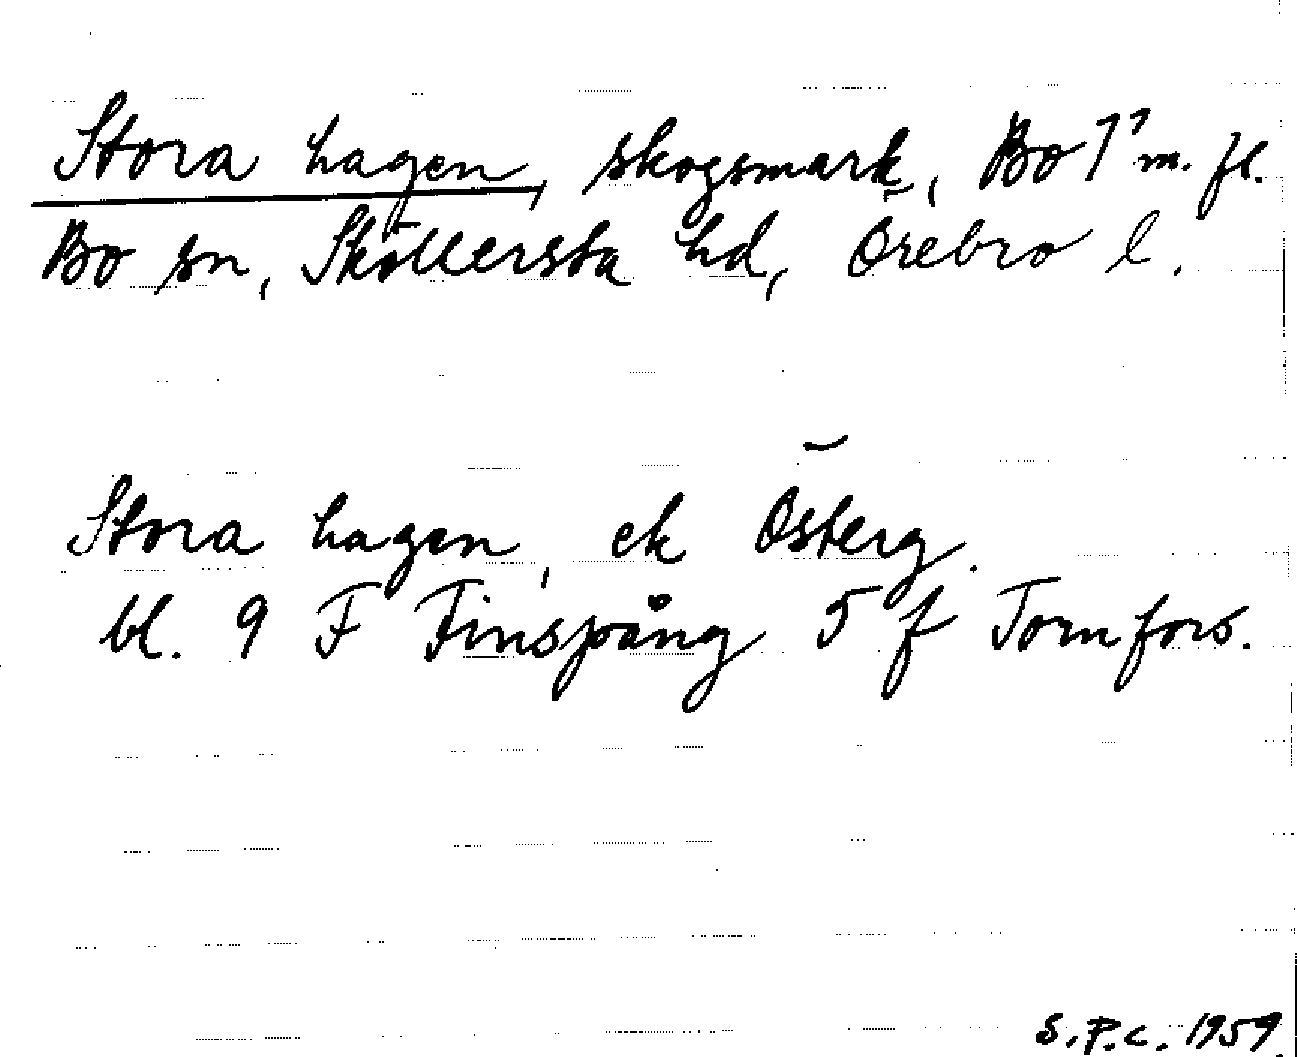 Stora hagen, skogsmark, Bo 1⁷ m. fl.
Bo sn, Sköllersta hd, Örebro l.
Stora hagen, ek Österg.
bl. 9 F Finspång 5 f Tornfors.
S.P.C. 1959.